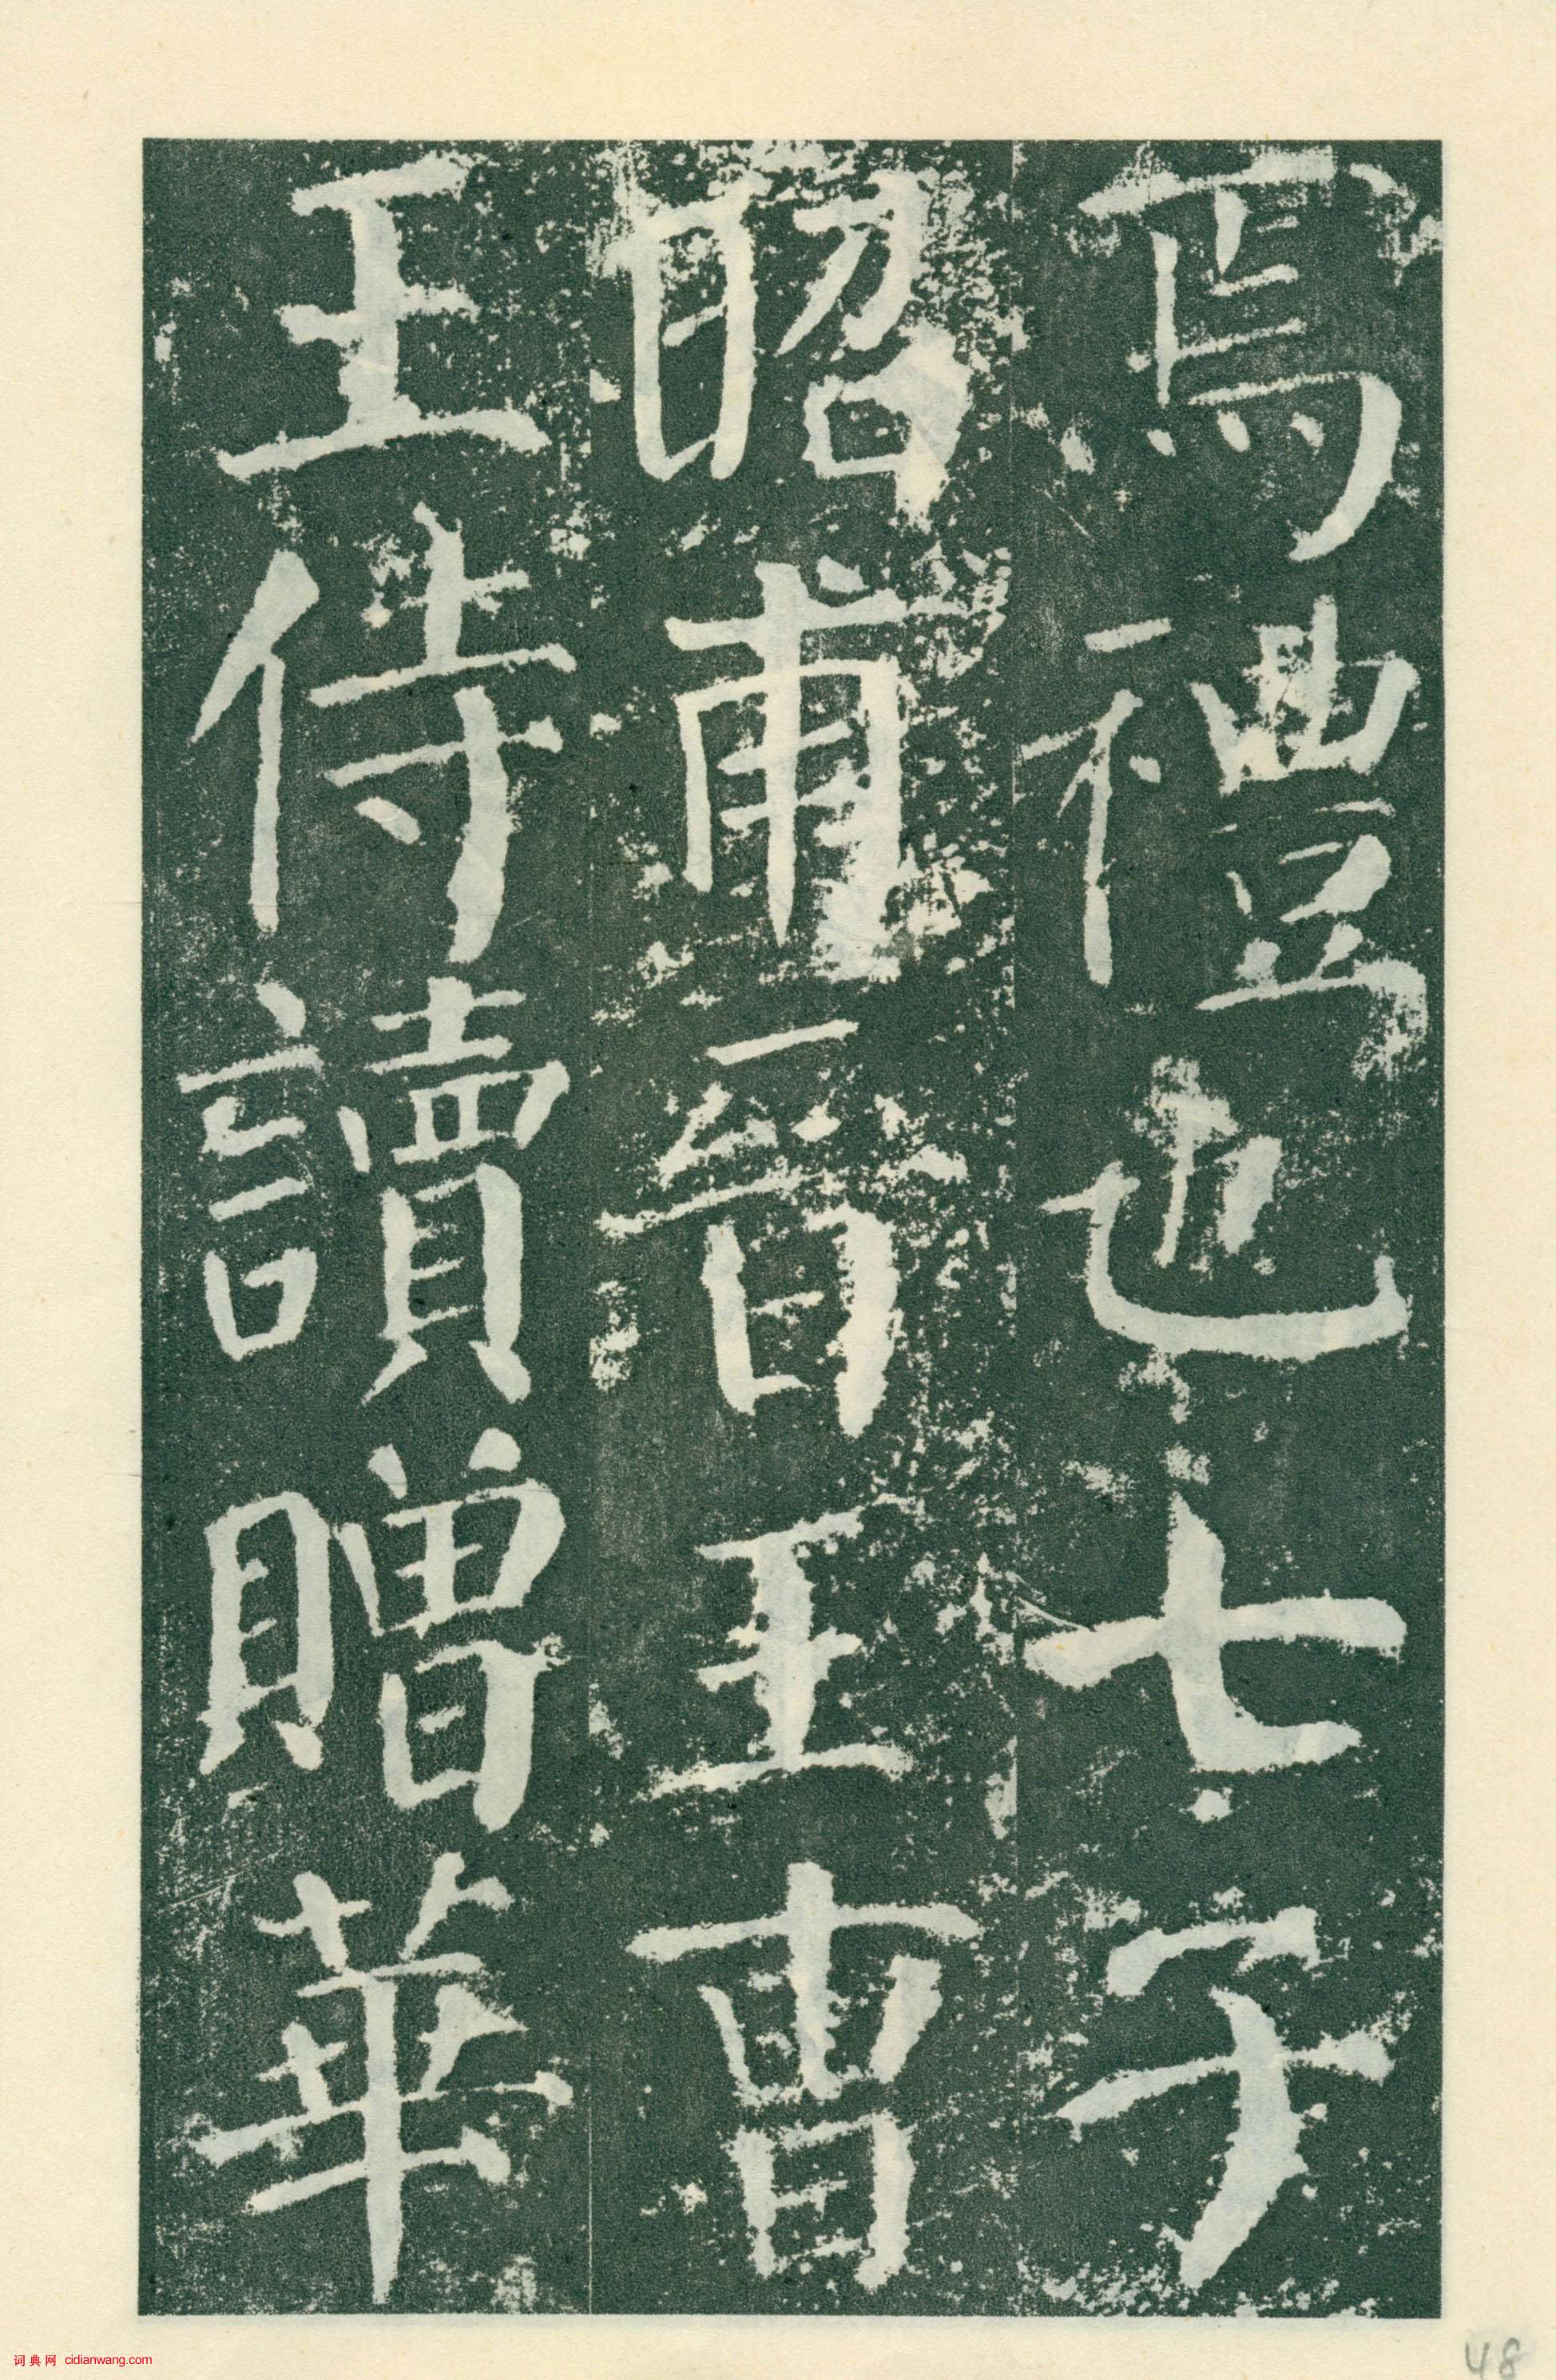 焉禮也七子
昭甫晉王曹
王侍讀贈華
词典网 cidianwang.com
48